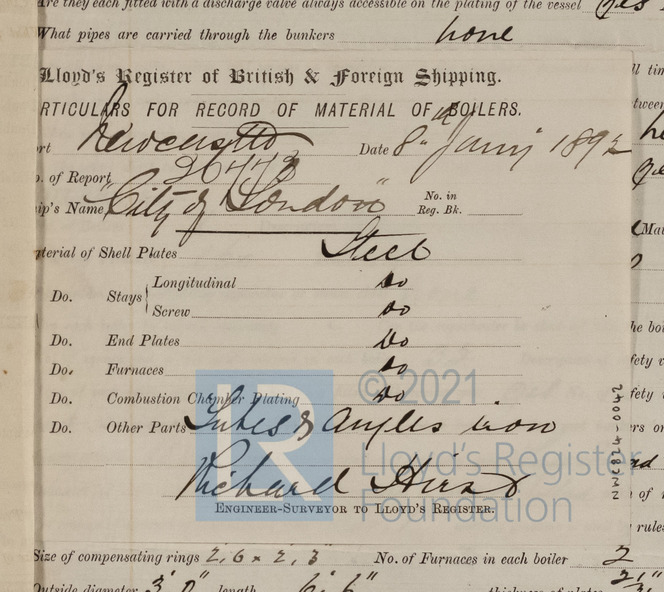 Are they each fitted with a discharge valve always accessible on the plating of the vessel yes
What pipes are carried through the bunkers none
Lloyd's Register of British & Foreign Shipping.
RTICULARS FOR RECORD OF MATERIAL OF BOILERS.
ort Newcastle Date 8th 1892
o. of Report 26443
ip's Name "City of London" No. in Reg. Bk.
terial of Shell Plates Steel
Do. Stays Longitudinal do
Screw do
Do. End Plates do
Do. Furnaces do
Do. Combustion Chamber Plating do
Do. Other Parts Tubes & Angles iron
Richard Hirst
ENGINEER-SURVEYOR TO LLOYD'S REGISTER.
Size of compensating rings 2'.6" × 2'.3" No. of Furnaces in each boiler 2
Outside diameter 3'.0" length 6'.6" thickness of plates
© 2021
Lloyd's Register
Foundation